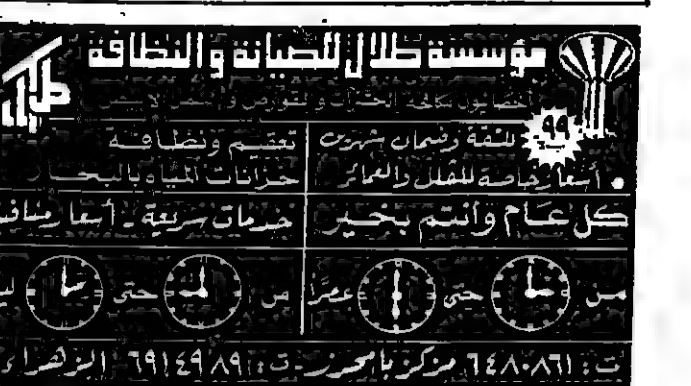 مؤسسة طلال للصيانة والنظافة
طلال
أخصائيون مكافحة الحشرات والقوارض والنمل الأبيض
٩٩ للشقة وضمان شهرين
تعقيم ونظافة
• أسعار خاصة للفلل والعمائر
خزانات المياه بالبخار
كل عام وأنتم بخير
خدمات سريعة - أسعار منافسة
من حتى عصراً
من حتى
ت: ٦٤٨٠٨٦١ مركز بامحرز - ت: ٦٩١٤٩٨٩ الزهراء